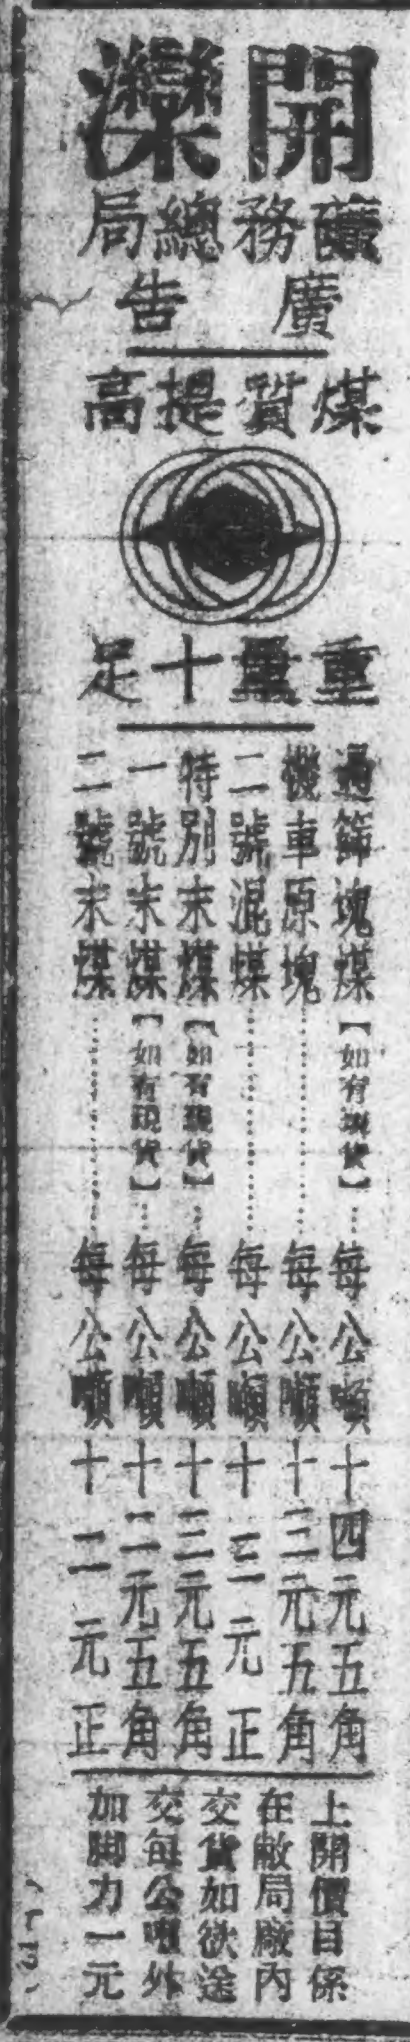 開灤
礦務總局
廣告
煤質提高
重量十足
過篩塊煤【如有現貨】…每公噸十四元五角
機車原塊………每公噸十三元五角
二號混煤………每公噸十三元正
特別末煤【如有現貨】…每公噸十三元五角
一號末煤【如有現貨】…每公噸十二元五角
二號末煤………每公噸十二元正
上開價目係
在敝局廠內
交貨如欲送
交每公噸外
加脚力一元